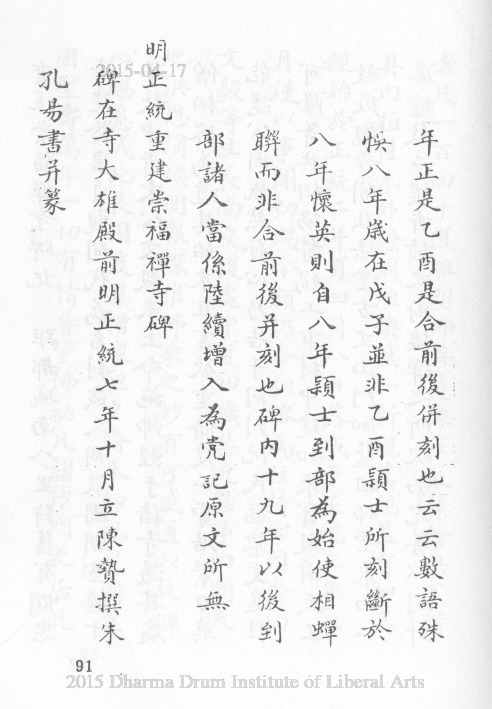 年正是乙酉是合前後併刻也云云數語殊
悞八年歲在戊子並非乙酉顥士所刻斷於
八年懷英則自八年顥士到部為始使相蟬
聯而非合前後并刻也碑内十九年以後到
部諸人當係陸續增入為党記原文所無
明正統重建崇福禪寺碑
碑在寺大雄殿前明正統七年十月立陳贄撰朱
孔昜書并篆
2015-04-17
91
2015 Dharma Drum Institute of Liberal Arts